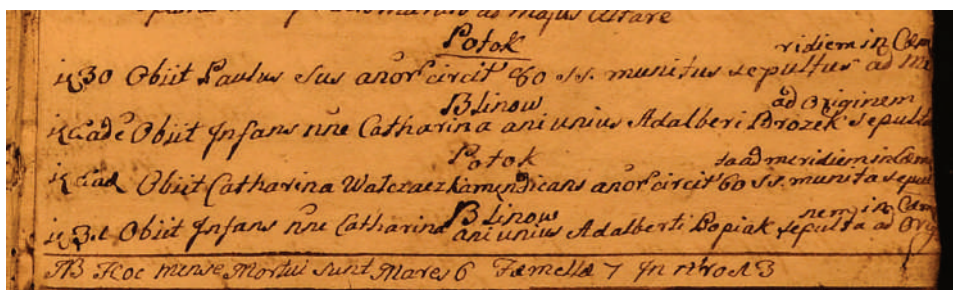 ad majus Altare
Potok
ridiem in Cæm
30 Obiit Paulus Sus anor circit 60 s.s. munitus sepultus ad Me
Blinow
ad Originem
eade Obiit Infans nne Catharina ani unius Adalberi Brozek sepulta
Potok
ta ad meridiem in Cæm
ead Obiit Catharina Walczaczka mendicans anor circit 60 s.s. munita sepul
Blinow
nem in Cæm
31 Obiit Infans nne Catharina ani unius Adalberti Popiak sepulta ad Orig
NB Hoc mense Mortui sunt Mares 6 Fæmellæ 7 In